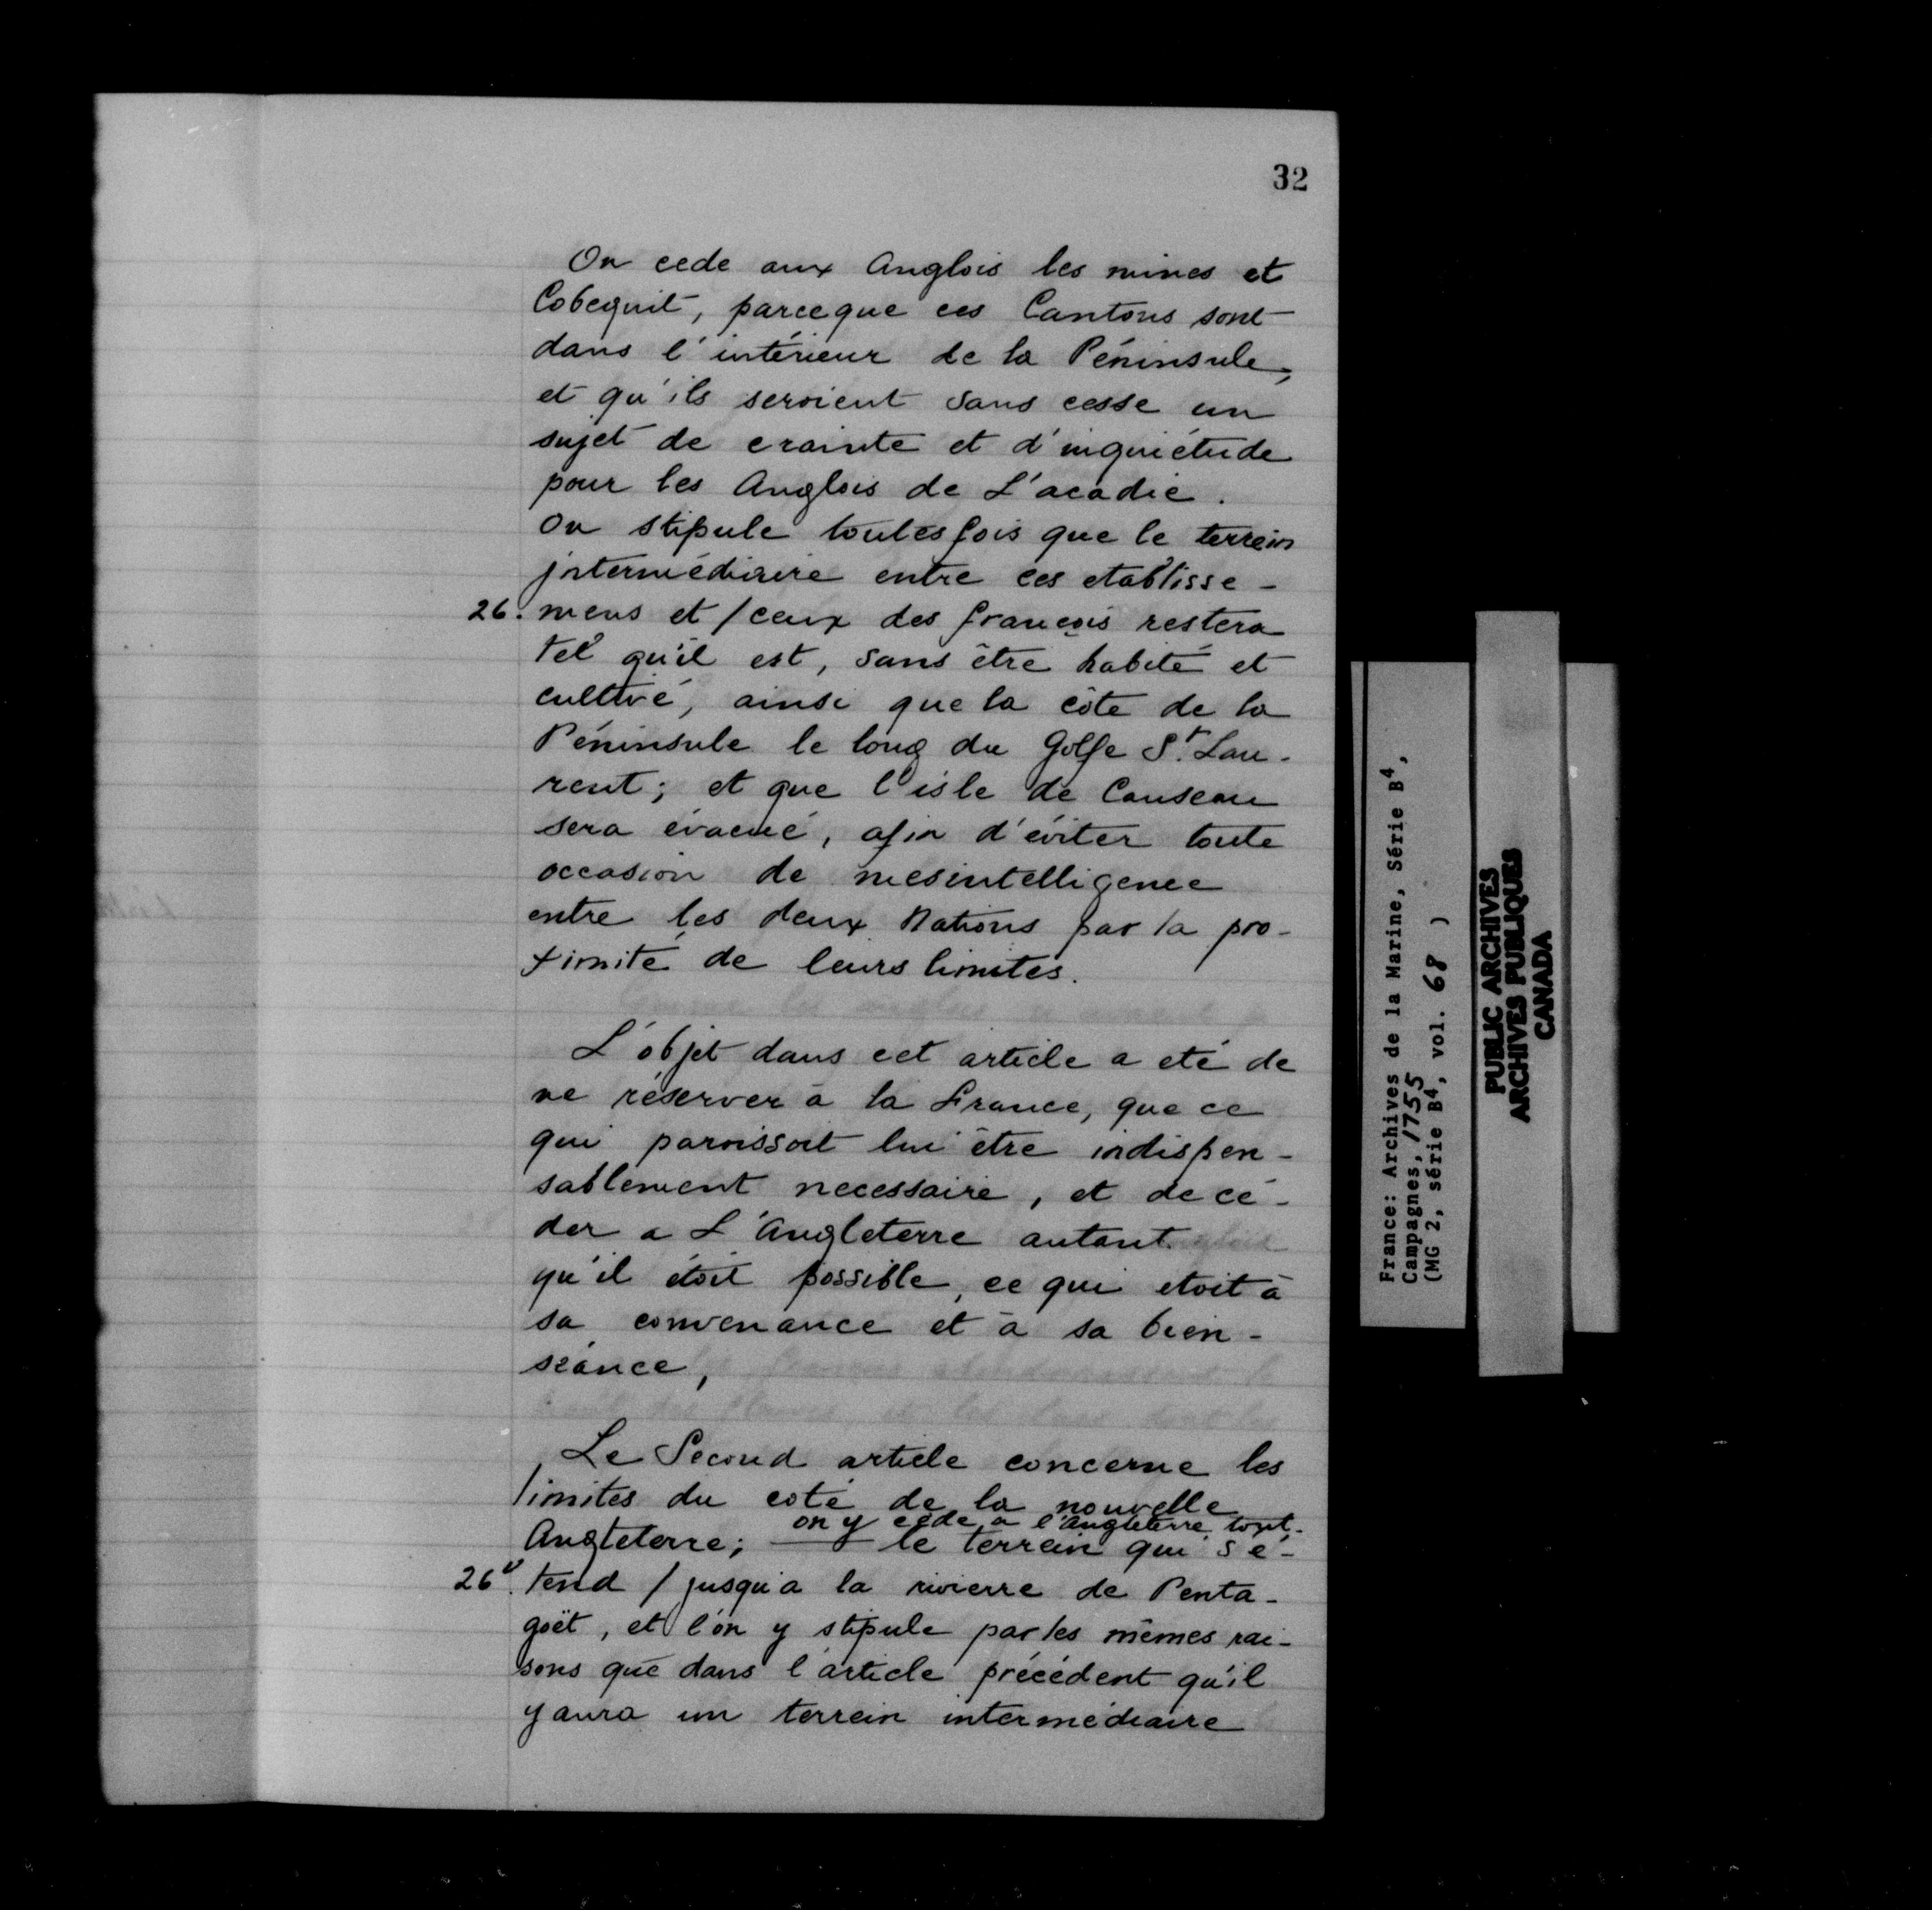 32
On cede aux Anglois les mines et
Cobequit, parceque ces Cantons sont
dans l'intérieur de la Péninsule,
et qu'ils seroient sans cesse un
sujet de crainte et d'inquiétude
pour les Anglois de L'acadie.
On stipule toutesfois que le terrein
intermédiaire entre ces etablisse-
26. mens et / ceux des françois restera
tel qu'il est, sans être habité et
cultivé, ainsi que la côte de la
Péninsule le long du Golfe St. Lau-
rent; et que l'isle de Canseau
sera évacué, afin d'éviter toute
occasion de mesintelligence
entre les deux Nations par la pro-
ximité de leurs limites.
L'objet dans cet article a eté de
ne réserver à la France, que ce
qui paroissoit lui être indispen-
sablement necessaire, et de cé-
der a L'Angleterre autant
qu'il étoit possible, ce qui etoit à
sa convenance et à sa bien-
séance,
Le Second article concerne les
limites du coté de la nouvelle
on y cède a l'Angleterre tout
Angleterre; — le terrein qui s'é-
26v. tend / jusqu'a la rivierre de Penta-
goët, et l'on y stipule par les mêmes rai-
sons que dans l'article précédent qu'il
y aura un terrein intermédiaire
France: Archives de la Marine, Série B4,
Campagnes, 1755
(MG 2, série B4, vol. 68 )
PUBLIC ARCHIVES
ARCHIVES PUBLIQUES
CANADA